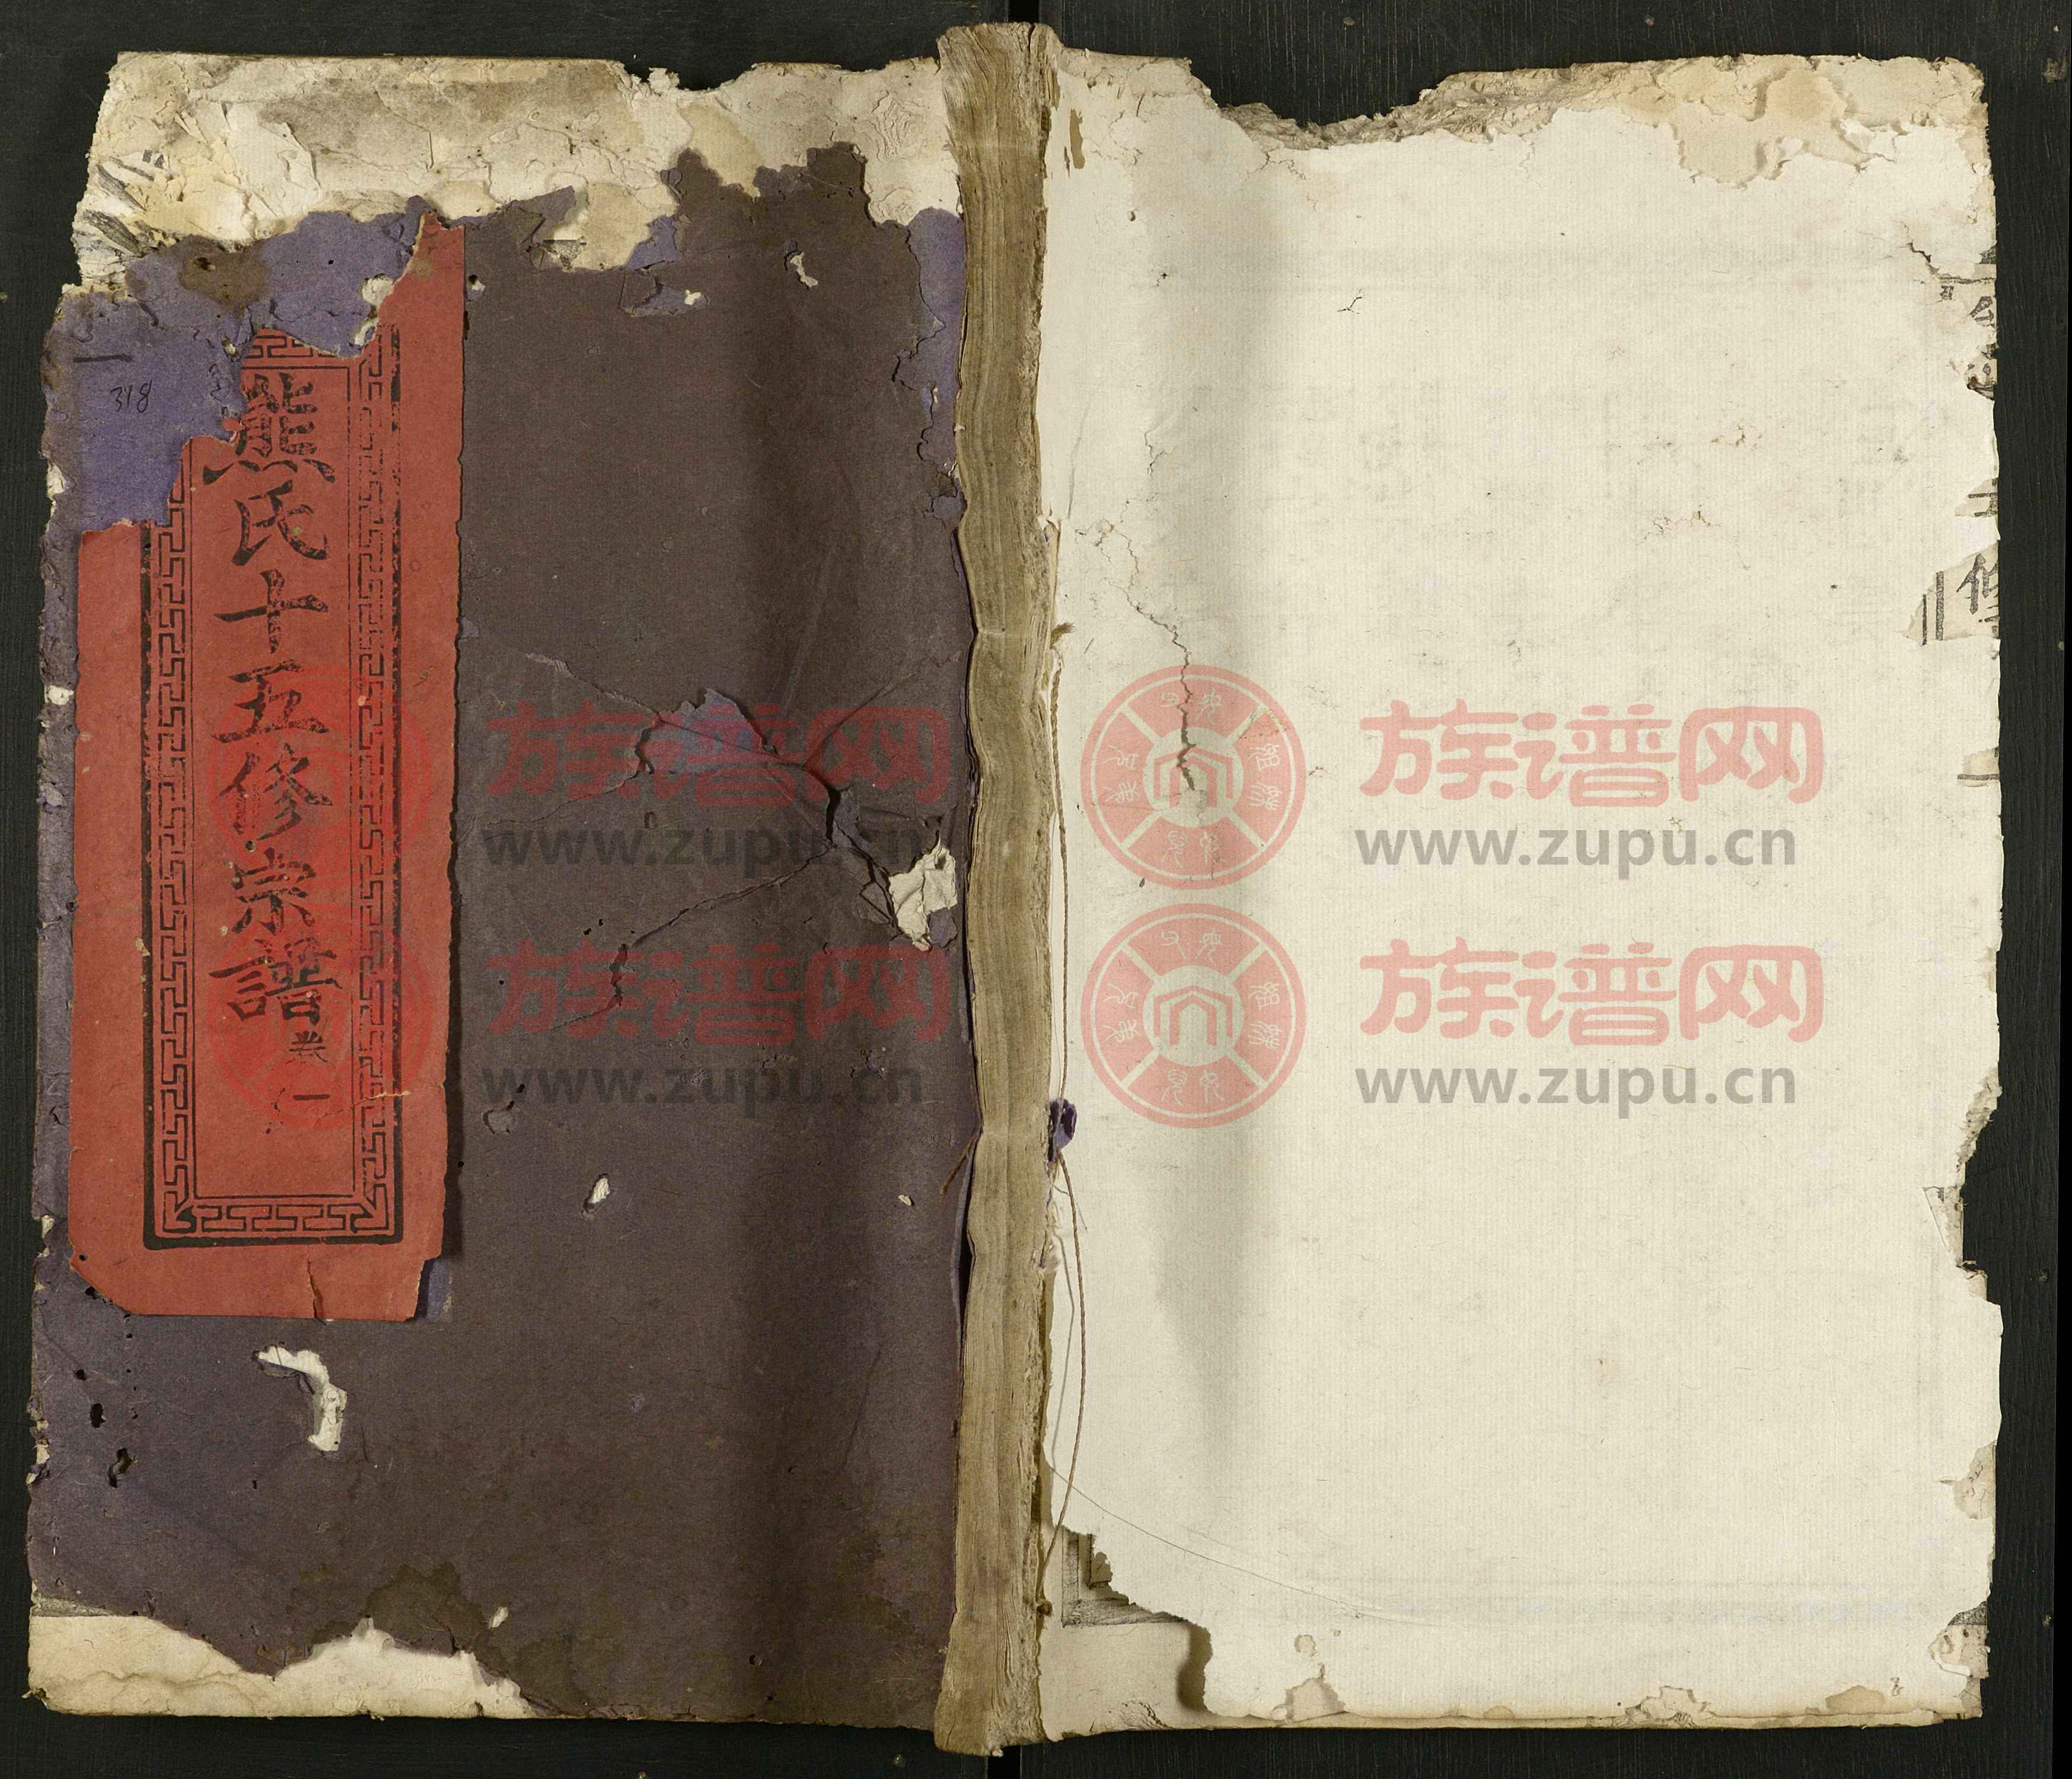 熊氏十五修宗譜
卷一
一
318
修
族谱网
www.zupu.cn
族谱网
www.zupu.cn
族谱网
www.zupu.cn
族谱网
www.zupu.cn